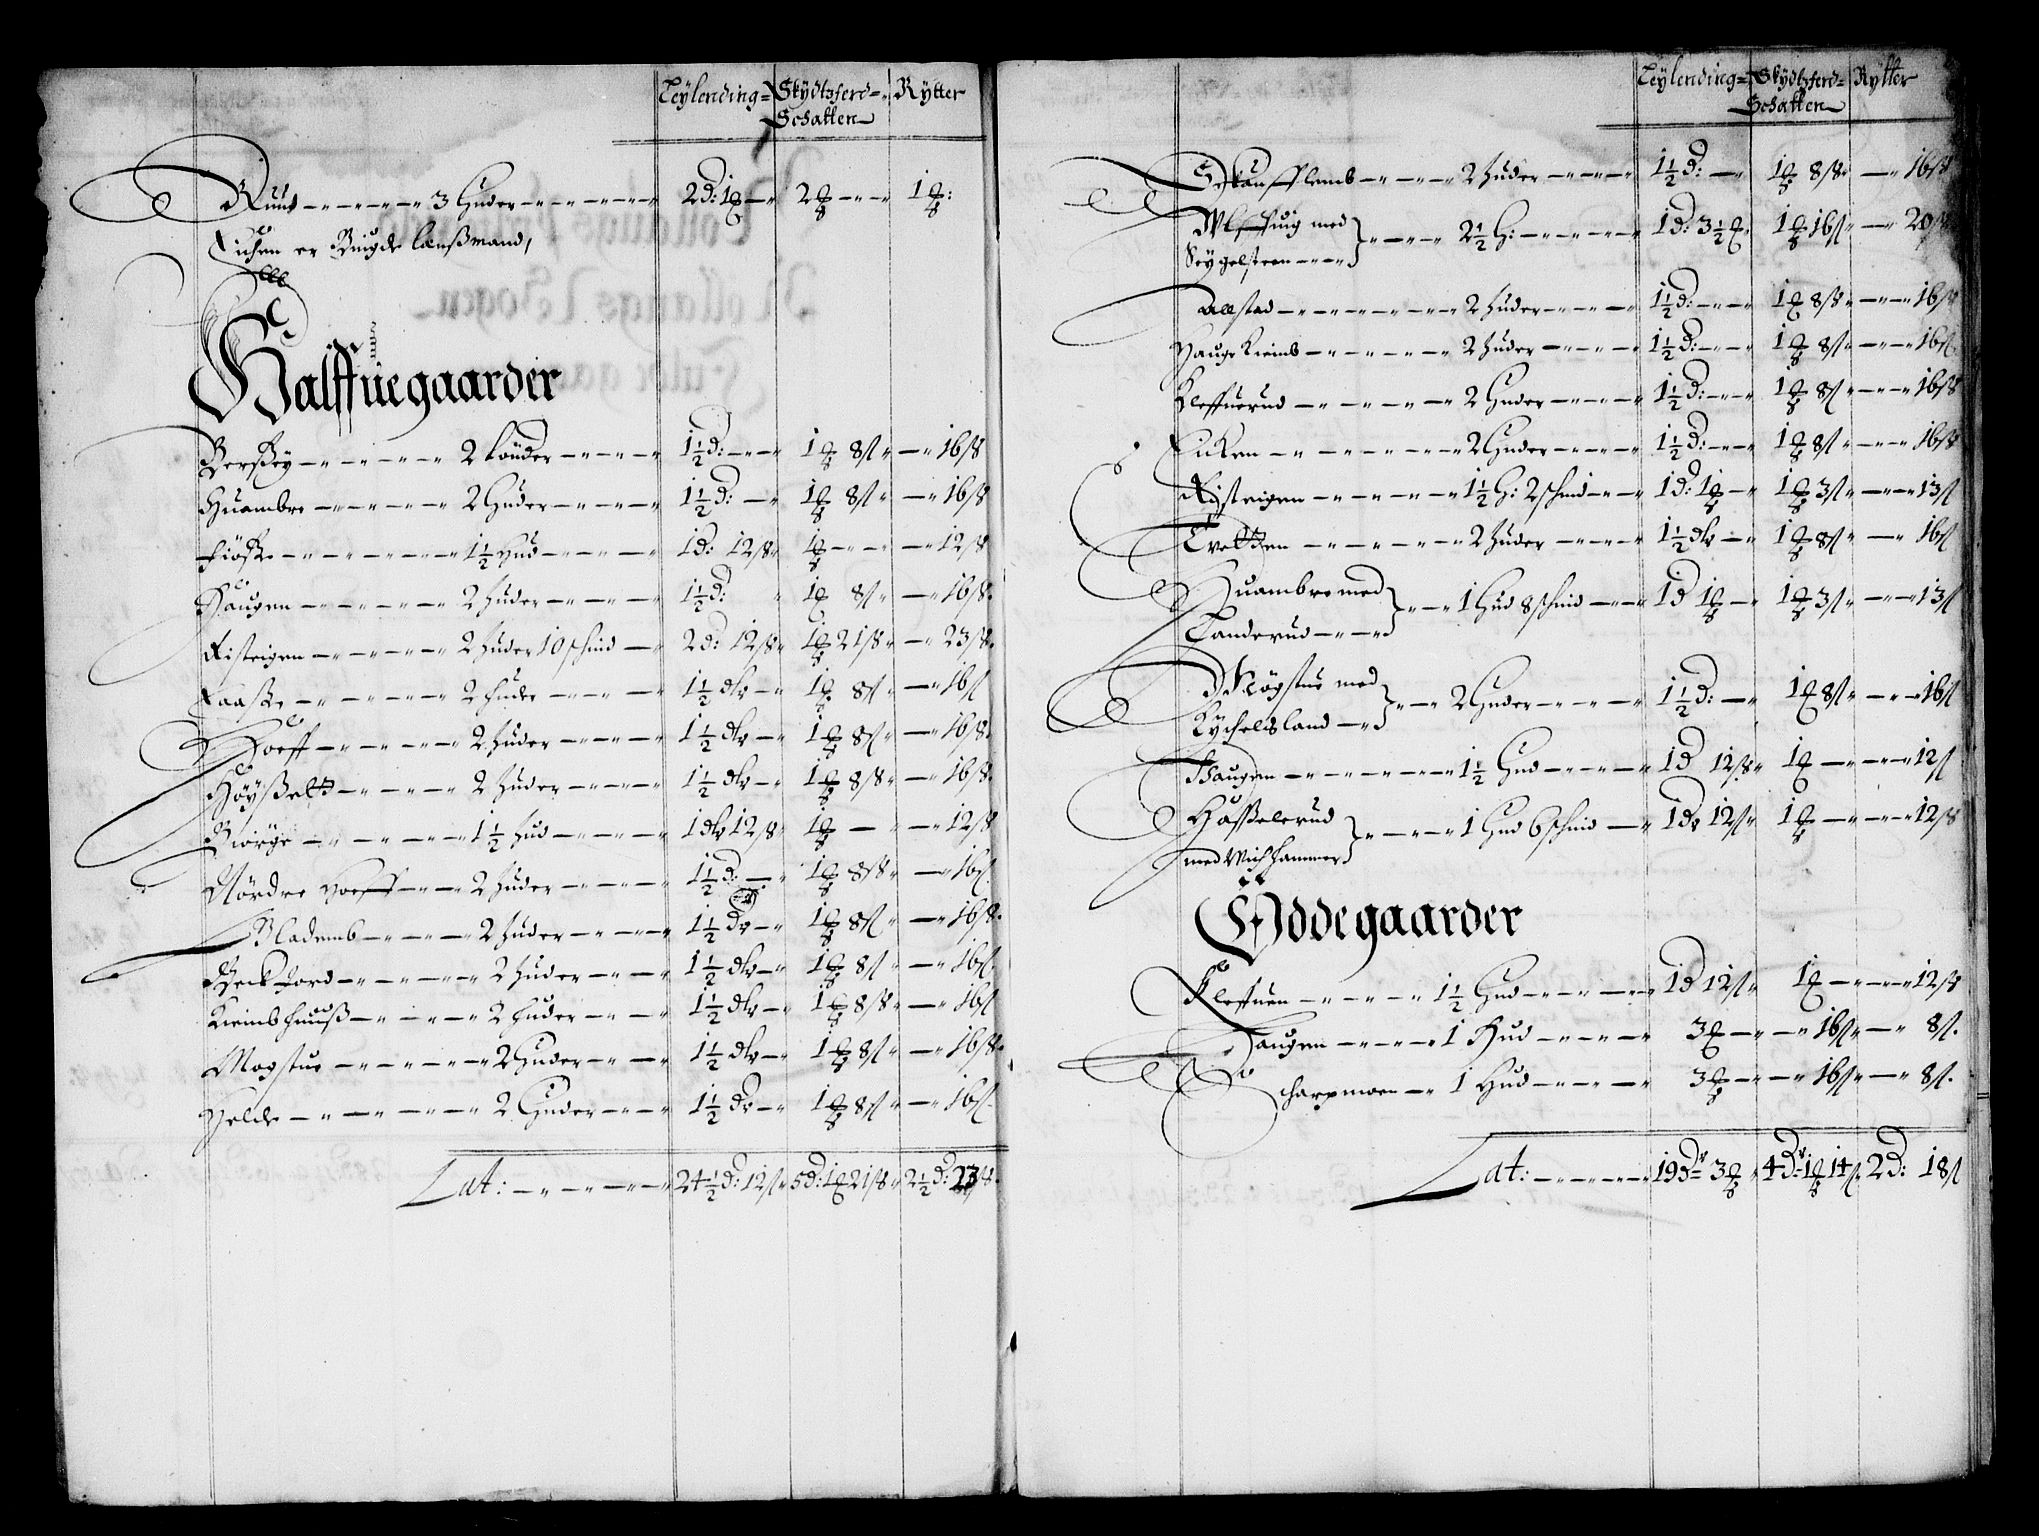 Leÿlending= Skÿdtzferd= Rÿtter
Schatten
Ruud 3 Huder 2d: 1 2 1
Eichen er Buigde lensßmand,
Halffuegaarder
Berßey 2 1½d: 1 8ß 16ß
Huambre 2 Huder 1½d: 1 8ß 16ß
Fiøske 1½ Hud 1d: 12ß 1 12ß
Haugen 2 huder 1½d: 1 8ß 16ß
Risteigen 2 huder 10 schind 2d: 12ß 1 21ß 23ß
Faaske 2 huder 1½ dlr 1 8ß 16ß
Hoeff 2 huder 1½ dlr 1 8ß 16ß
Høyßett 2 huder 1½ dlr 1 8ß 16ß
Biørge 1½ hud 1 dlr 12ß 1 12ß
Nørdre Hoeff 2 huder 1½d: 1 8ß 16ß
Blademb 2 huder 1½ dr 1 8ß 16ß
Beckiord 2 huder 1½ dlr 1 8ß 16ß
Kiembhuuß 2 huder 1½ dlr 1 8ß 16ß
Mogstue 2 Huder 1½ dlr 1 8ß 16ß
Helde 2 Huder 1½ dr 1 8ß 16ß
Lat: 24½d: 12ß 5d: 1 21ß 2½d: 23ß
Leÿlending= Skÿdtzferd= Rÿtter
Schatten
2 huder 1½d: 1 8ß 16ß
Vlffuig med
Seygelsteen 2½ H: 1d: 3½ 1 16ß 20ß
Allstad 2 huder 1½d: 1 8ß 16ß
Hauge Kiemb 2 huder 1½d: 1 8ß 16ß
Kleffuerud 2 Huder 1½d: 1 8ß 16ß
Eicken 2 Huder 1½d: 1 8ß 16ß
Risteigen 1½ H: 2 schind 1d: 1 1 3ß 13ß
Tvetten 2 huder 1½ dlr 1 8ß 16ß
Huambre med
Landerud 1 Hud 8 schind 1d 1 1 3ß 13ß
Møgstue med
Kychelsland 2 Huder 1½d: 1 8ß 16ß
Haugen 1½ Hud 1d 12ß 1 12ß
Haßelerud
med Wichhammer 1 Hud 6 schind 1dr 12ß 1 12ß
Ødde gaarder
Kleffuen 1½ Hud 1d 12ß 1 12ß
Haugen 1 Hud 3 16ß 8ß
Scharpmoen 1 Hud 3 16ß 8ß
Lat: 19d 3 4d 1 14ß 2d: 18ß